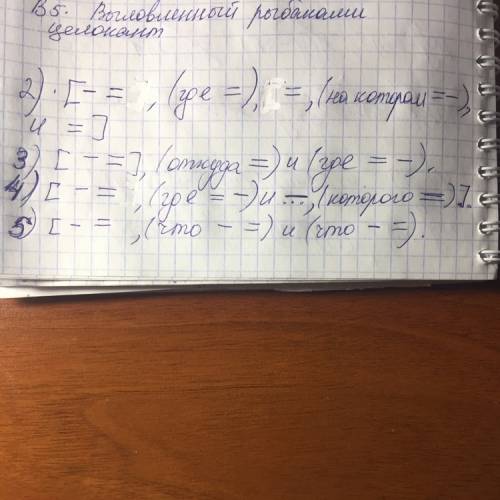 В5. Выловленный рыбаками
целокант
2) [ - = , (где =), =, (на котором = -),
и = ]
3) [ - = ], (откуда =) и (где = -).
4) [ - = , (где = -) и ..., (которого =) ].
5) [ - = , (что - =) и (что - =).